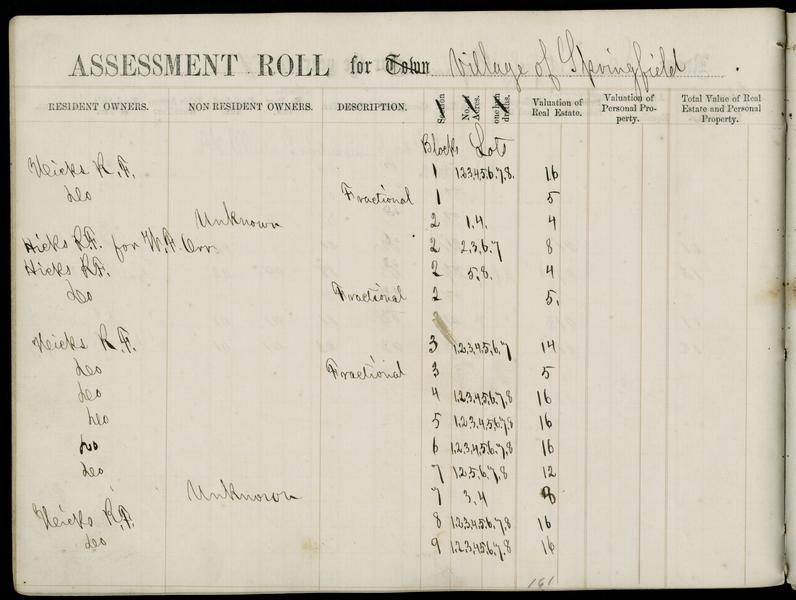 ASSESSMENT ROLL for Town Village of Springfield.
RESIDENT OWNERS. NON RESIDENT OWNERS. DESCRIPTION. Section No. of Acres. one hun-dredths. Valuation of Real Estate. Valuation of Personal Pro-perty. Total Value of Real Estate and Personal Property.
Blocks Lots
Hicks R.F. 1 1,2,3,4,5,6,7,8. 16
do Fractional 1 5
Unknown 2 1,4. 4
Hicks R.F. for W.F. Orr 2 2,3,6,7 8
Hicks R.F. 2 5,8. 4
do Fractional 2 5.
Hicks R.F. 3 1,2,3,4,5,6,7 14
do Fractional 3 5
do 4 1,2,3,4,5,6,7,8 16
do 5 1,2,3,4,5,6,7,8 16
do 6 1,2,3,4,5,6,7,8 16
do 7 1,2,5,6,7,8 12
Unknown 7 3,4 8
Hicks R.F. 8 1,2,3,4,5,6,7,8 16
do 9 1,2,3,4,5,6,7,8 16
161